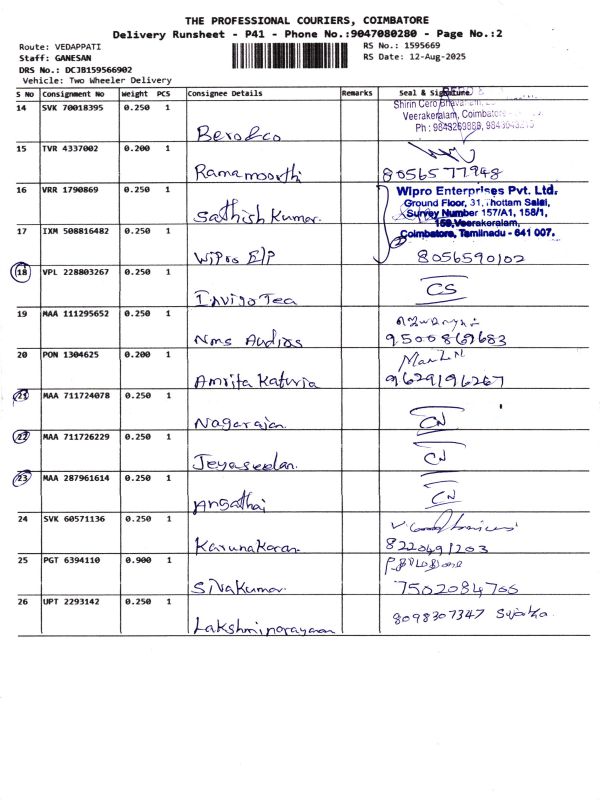 THE PROFESSIONAL COURIERS, COIMBATORE
Delivery Runsheet - P41 - Phone No.:9047080280 - Page No.:2
Route: VEDAPPATI
RS No.: 1595669
Staff: GANESAN
RS Date: 12-Aug-2025
DRS No.: DCJB159566902
Vehicle: Two Wheeler Delivery
S No Consignment No Weight PCS Consignee Details Remarks Seal & Signature
14 SVK 70018395 0.250 1
Shirin Cero
Veerakeralam, Coimbatore
Bero & co
15 TVR 4337002 0.200 1
Ramamoorthi 8056577948
16 VRR 1790869 0.250 1
Wipro Enterprises Pvt. Ltd.
Ground Floor, 31, Thottam Salai,
Survey Number 157/A1, 158/1,
159, Veerakeralam,
Coimbatore, Tamilnadu - 641 007.
Sathish Kumar.
17 IXM 508816482 0.250 1
Wipro E/P 8056590102
18 VPL 228803267 0.250 1
CS
Enviro Tea
19 MAA 111295652 0.250 1
Nms Audios 9500869683
20 PON 1304625 0.200 1
Amrita Katuria 9629196267
21 MAA 711724078 0.250 1
Nagarajan. CN
22 MAA 711726229 0.250 1
Jeyaseelan. CN
23 MAA 287961614 0.250 1
Angathai CN
24 SVK 60571136 0.250 1
Karunakaran. 8220491203
25 PGT 6394110 0.900 1
Sivakumar. 7502084766
26 UPT 2293142 0.250 1
8098307347 Sujatha.
Lakshminarayanan